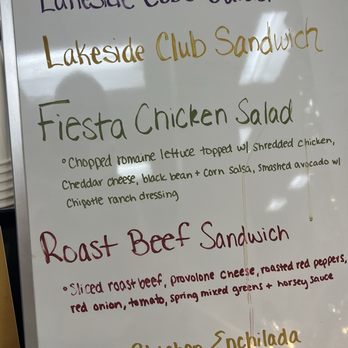 Lakeside
Lakeside Club Sandwich
Fiesta Chicken Salad
• Chopped romaine lettuce topped w/ shredded chicken,
Cheddar cheese, black bean + corn salsa, smashed avocado w/
Chipotle ranch dressing
Roast Beef Sandwich
• Sliced roast beef, provolone cheese, roasted red peppers,
red onion, tomato, spring mixed greens + horsey sauce
Chicken Enchilada